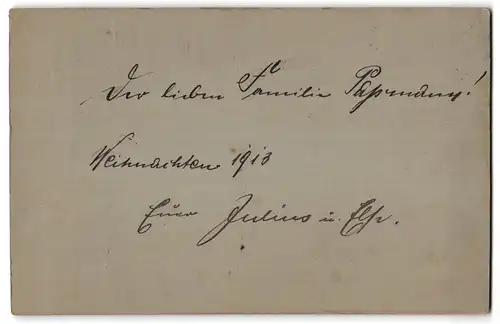 Der lieben Familie Paßmann!
Weihnachten 1913
Euer Julius u. Else.